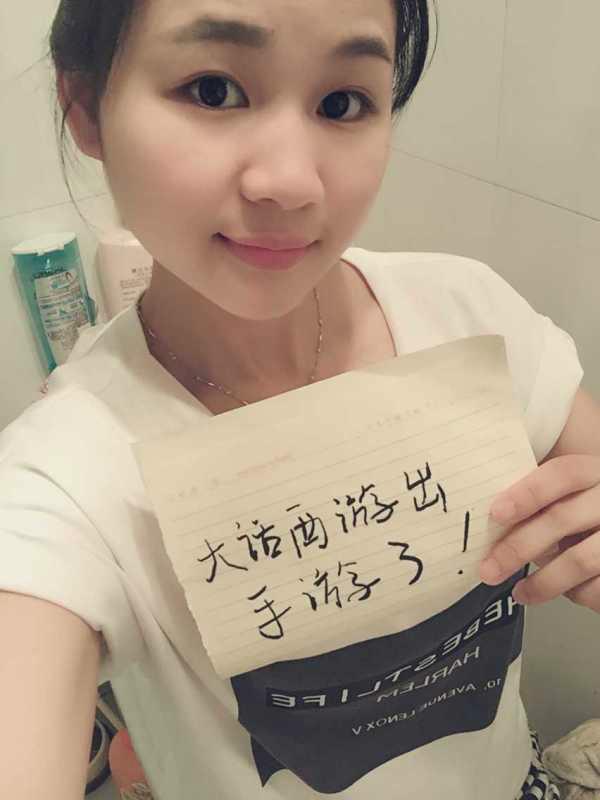 大话西游出
手游了！
HEBESTLIFE
HARLEM
10, AVENUE LENOX V